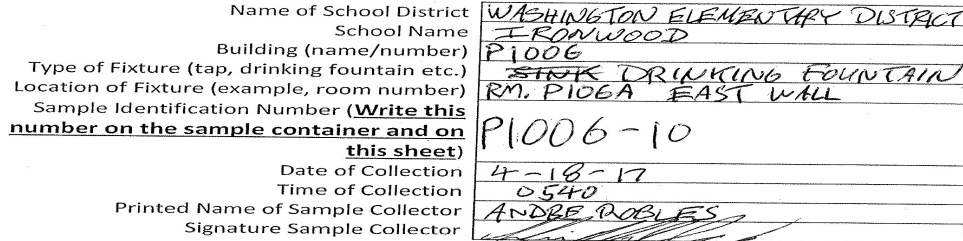 Name of School District WASHINGTON ELEMENTARY DISTRICT
School Name IRONWOOD
Building (name/number) P1006
Type of Fixture (tap, drinking fountain etc.) SINK DRINKING FOUNTAIN
Location of Fixture (example, room number) RM. P106A EAST WALL
Sample Identification Number (Write this
number on the sample container and on P1006-10
this sheet)
Date of Collection 4-18-17
Time of Collection 0540
Printed Name of Sample Collector ANDRE ROBLES
Signature Sample Collector